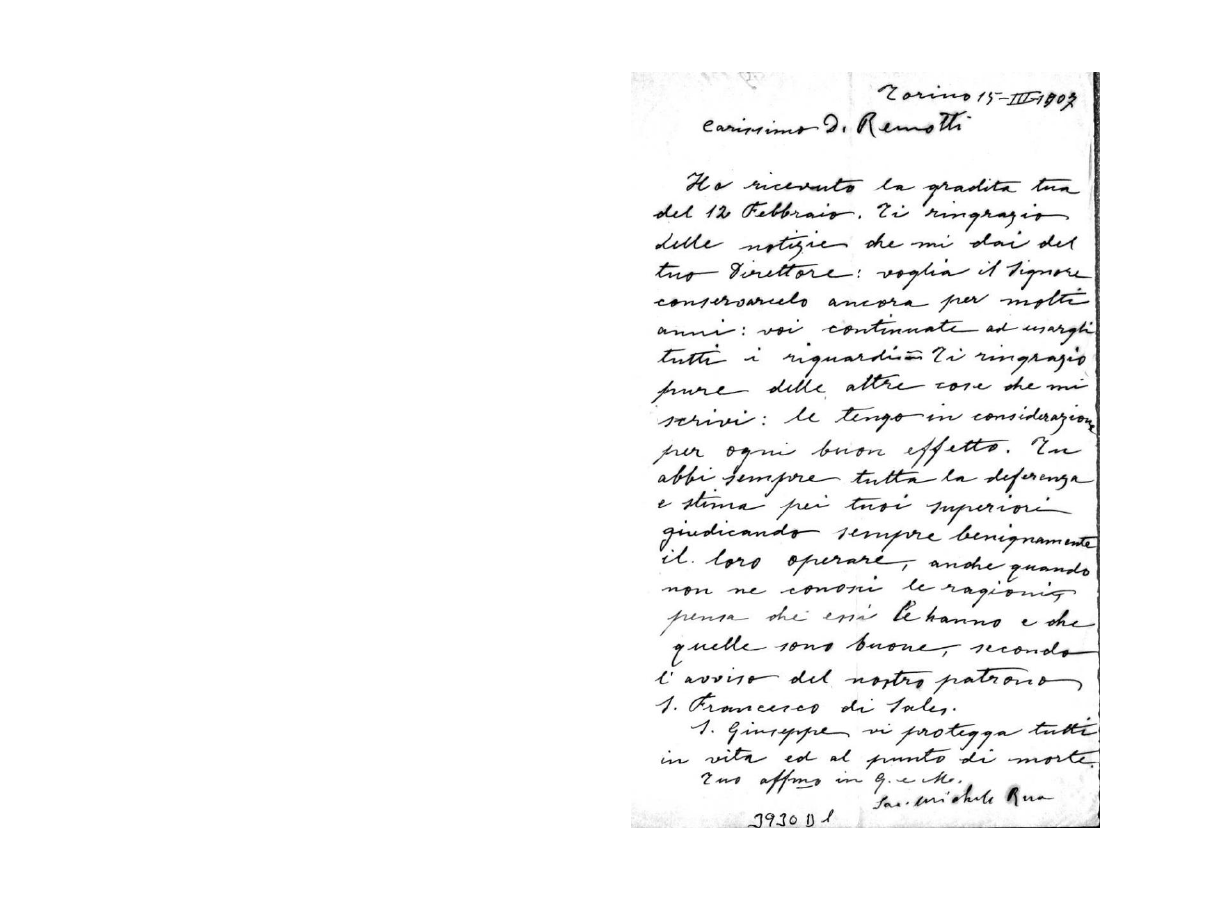 Torino 15-III-1907
Carissimo D. Remotti
Ho ricevuto la gradita tua
del 12 Febbraio. Ti ringrazio
delle notizie che mi dai del
tuo Direttore: voglia il Signore
conservarcelo ancora per molti
anni: voi continuate ad usargli
tutti i riguardi = Ti ringrazio
pure delle altre cose che mi
scrivi: le tengo in considerazione
per ogni buon effetto. Tu
abbi sempre tutta la deferenza
e stima pei tuoi superiori
giudicando sempre benignamente
il loro operare, anche quando
non ne conosci le ragioni;
pensa che essi le hanno e che
quelle sono buone, secondo
l'avviso del nostro patrono
S. Francesco di Sales.
S. Giuseppe vi protegga tutti
in vita ed al punto di morte.
Tuo affmo in G. e M.
Sac. Michele Rua
3930 D 1